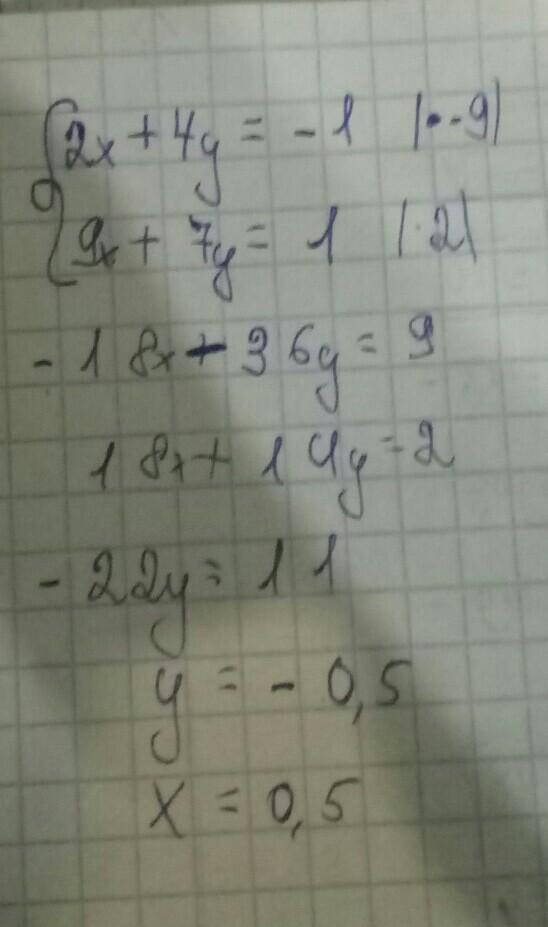 2x + 4y = - 1 |· - 9|
9x + 7y = 1 |· 2|
- 18x - 36y = 9
18x + 14y = 2
- 22y = 11
y = - 0,5
x = 0,5